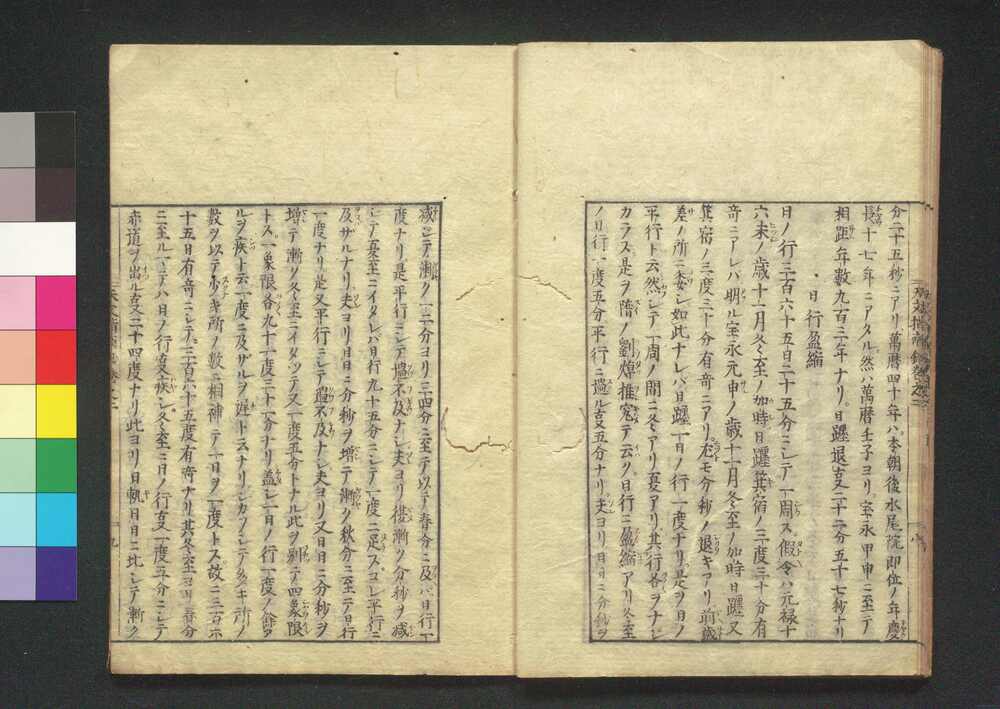 分二十五秒ニアリ萬暦四十年ハ本朝後水尾院即位ノ年慶
長十七年ニアタル然ハ萬暦壬子ヨリ宝永甲申ニ至テ
相距ル年数九百三年ナリ日躔退ヿ二十二分五十七秒ナリ
・日行盈縮
日ノ行三百六十五日二十五分ニシテ一周ス假令ハ元禄十
六未ノ歳十一月冬至ノ加時日躔箕宿ノ三度三十分有
竒ニアレハ明ル宝永元申ノ歳十一月冬至ノ加時日躔又
箕宿ノ三度三十分有竒ニアリ尤モ分秒ノ退キアリ前歳
差ノ所ニ委シ如此ナレバ日躔一日ノ行一度ナリ是ヲ日ノ
平行ト云然シテ一周ノ間ニ冬アリ夏アリ其行各ヲナシ
カラス是ヲ隋ノ劉焞推究テ云ク日行ニ盈縮アリ冬至
ノ日行一度五分平行ニ過ルヿ五分ナリ夫ヨリ日日ニ分秒ヲ
减シテ漸ク一二分ヨリ三四分ニ至テ以テ春分ニ及ハ日行一
度ナリ是平行ニシテ過不及ナシ夫ヨリ後漸ク分秒ヲ减
シテ夏至ニイタレバ日行九十五分ニシテ一度ニ足ズコレ平行ニ
及ザルナリ夫ヨリ日日ニ分秒ヲ増テ漸ク秋分ニ至テ日行
一度ナリ是又平行ニシテ過不及ナシ夫ヨリ又日日ニ分秒ヲ
増テ漸ク冬至ニイタツテ又一度五分トナル此ヲ別テ四象限
トス一象限各九十一度三十一分ナリ盖シ一日ノ行一度ノ餘ア
ルヲ疾ト云一度ニ及ザルヲ遅ト云ナリシカフシテ多キ所ノ
數ヲ以テ少キ所ノ數ニ相補テ一日ヲ一度トス故ニ三百六
十五日有竒ニシテ三百六十五度有竒ナリ其冬至ヨリ春分
ニ至ルマテハ日ノ行ヿ疾シ冬至ニ日ノ行ヿ一度五分ニシテ
赤道ヲ出ルヿ二十四度ナリ此ヨリ日軌日日ニ北シテ漸ク